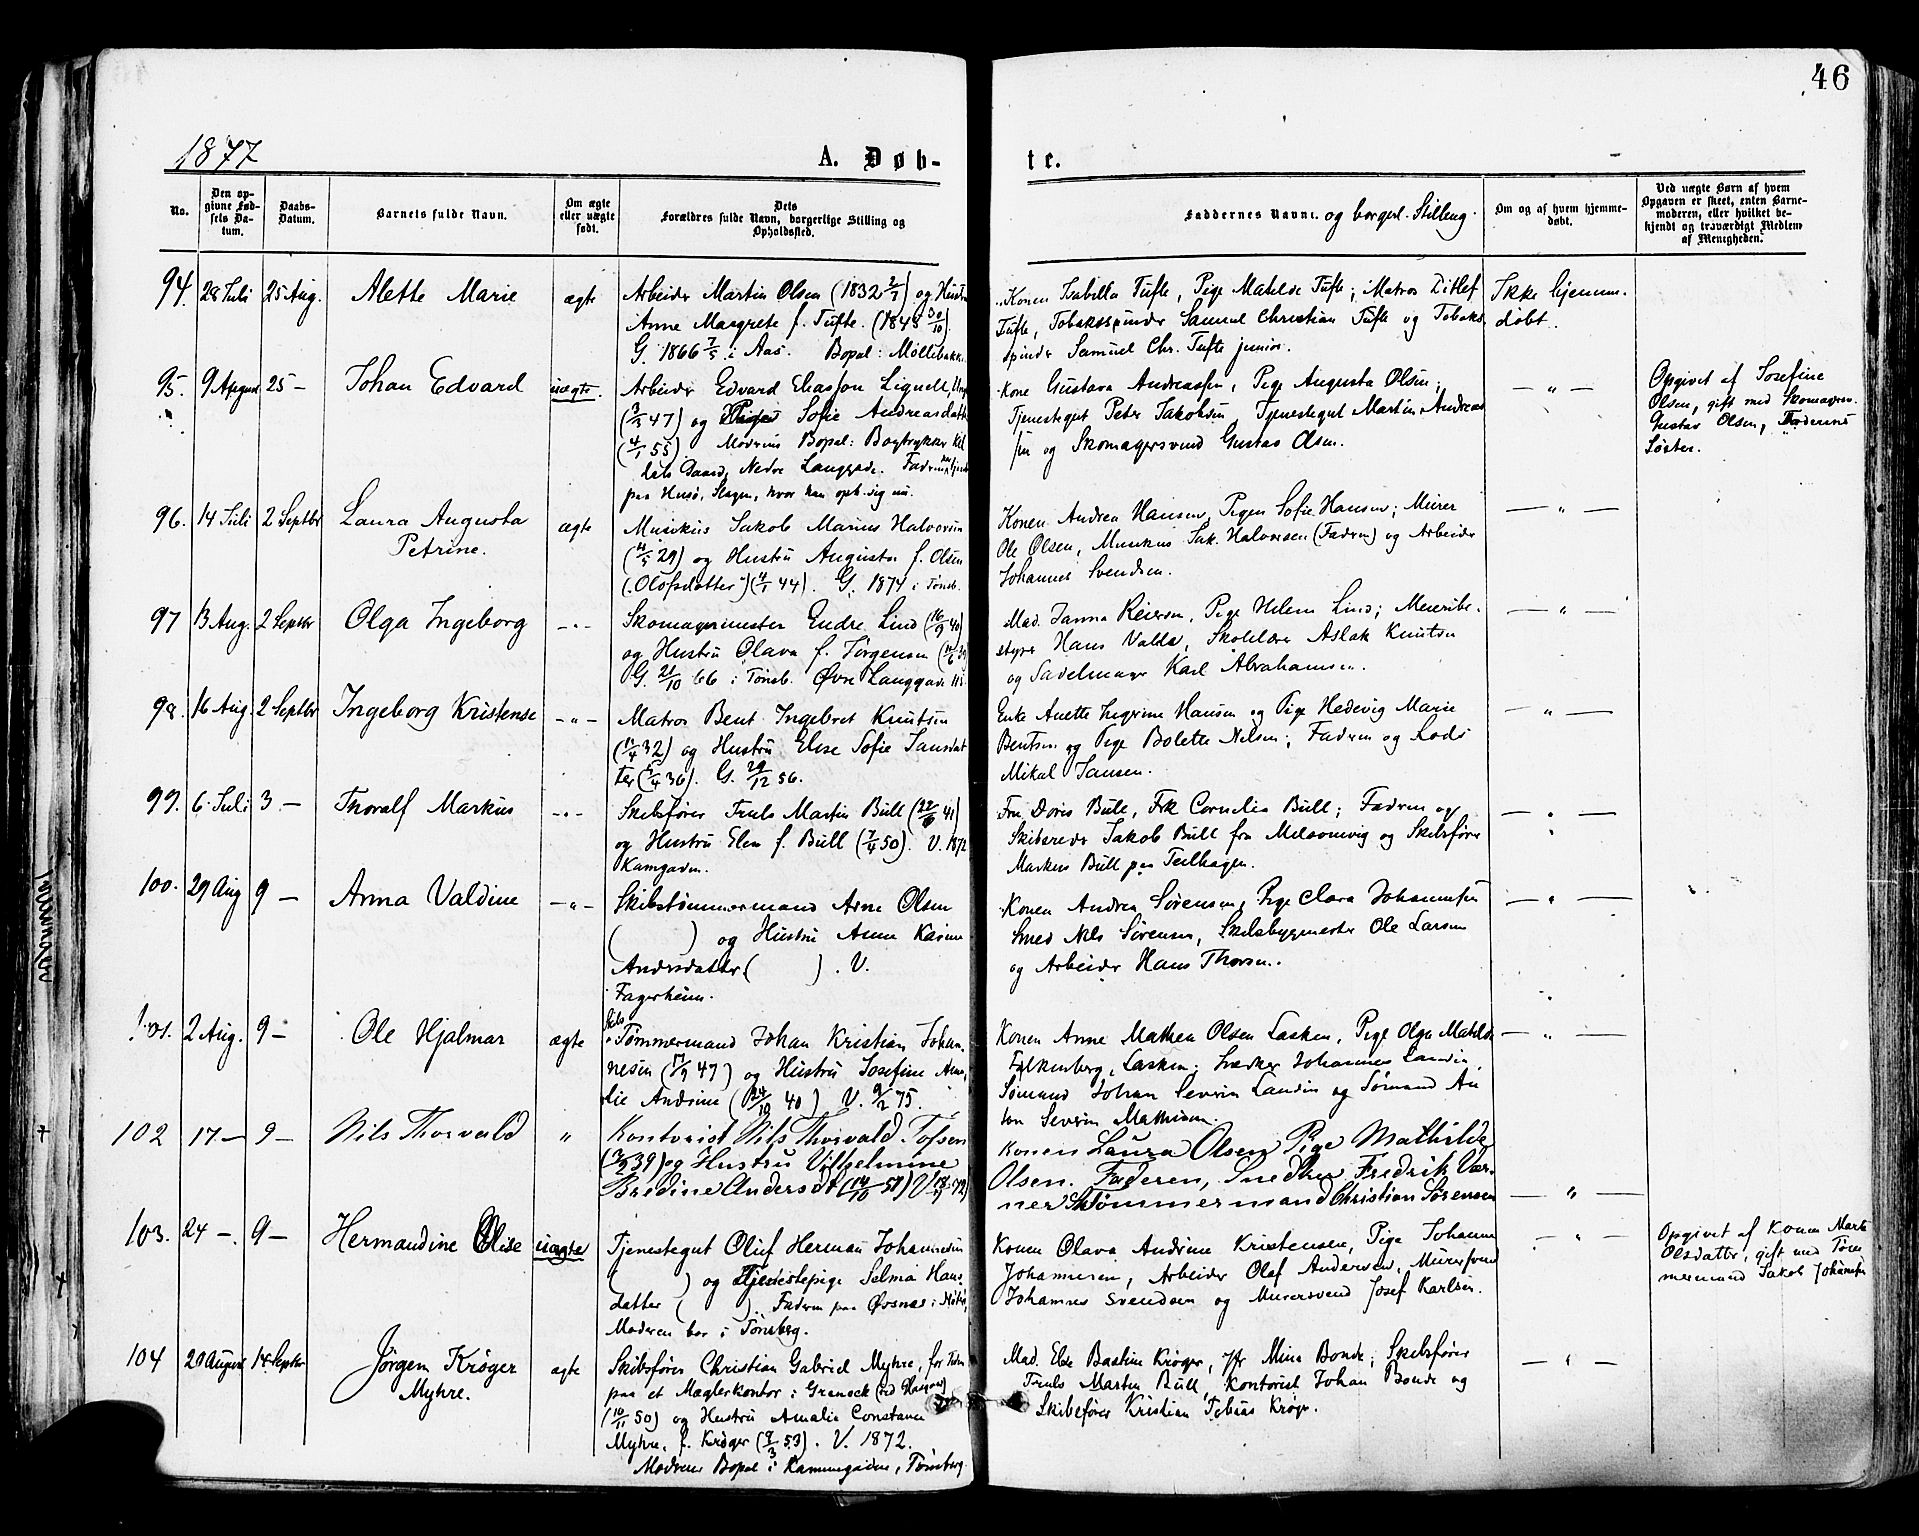 46
1877
A. Døb-
te.
No.
Den op-
givne Fød-
sels Da-
tum.
Daabs-
Datum.
Barnets fulde Navn.
Om ægte
eller uægte
født.
Dets
Forældres fulde Navn, borgerlige Stilling og
Opholdssted.
Faddernes Navne og borgerl. Stilling.
Om og af hvem hjemme-
døbt.
Ved uægte Børn af hvem
Opgaven er skeet, enten Barne-
moderen, eller hvilket be-
kjendt og troværdigt Medlem
af Menigheden.
94. 28 Juli 25 Aug. Alette Marie ægte
Arbeider Martin Olsen (1832 2/1) og Hustru
Anne Margrete f. Tufte. (1848 30/10).
G. 1866 7/5 i Aas. Bopæl: Møllebakk.
Konen Isabella Tufte, Pige Matilde Tufte; Matros Ditlef
Tufte, Tobaksspinder Samuel Christian Tufte og Tobaks
spinder Samuel Chr. Tufte junior.
Ikke hjemme-
døbt.
95. 9 August 25 — Johan Edvard uægte.
Arbeider Edvard Eliassen Lignell,
(3/5 47) og Pige Sofie Andreasdatter
(4/1 55). Modrens Bopæl: Bogtrykker
Gaard, Nedre Langgade. Fadren
paa Husø, Slagen, hvor han oph. sig nu.
Kone Gustava Andreassen, Pige Augusta Olsen;
Tjenestegut Peter Jakobsen, Tjenestegut Martin Andreas
sen og Skomagersvend Gustav Olsen.
— " —
Opgivet af Josefine
Olsen, gift med Skomagersv.
Gustav Olsen, Faderens
Søster.
96. 14 Juli 2 Septbr Laura Augusta
Petrine. ægte
Musikus Jakob Marius Halvorsen
(4/5 29) og Hustru Augusta f. Olsen
(Olofsdatter) (4/1 44). G. 1874 i Tønsb.
Konen Andrea Hansen, Pigen Sofie Hansen; Murer
Ole Olsen, Musikus Jak. Halvorsen (Fadren) og Arbeider
Johannes Svendsen.
— " —
97 13 Aug. 2 Septbr Olga Ingeborg — " —
Skomagermester Endre Lind (16/9 40)
og Hustru Olava f. Jørgensen
G. 21/10 66 i Tønsb. Øvre Langgade
Mad. Janna Reiersen, Pige Helene Lind; Meieribe-
styrer Hans Valdø, Skolelærer Aslak Knutsen
og Sadelmager Karl Abrahamsen.
— " —
98. 16 Aug. 2 Septbr Ingeborg Kristense — " —
Matros Bent Ingebret Knutsen
(11/4 32) og Hustru Elise Sofie Jansdat
ter (5/4 36). G. 29/12 56.
Enke Anette Hansen og Pige Hedevig Marie
Bentsen og Pige Bolette Nilsen; Fadren og Lods
Mikal Jansen.
— " —
99. 6 Juli 3 — Thoralf Markus — " —
Skibsfører Truls Martin Bull
og Hustru Elen f. Bull (7/4 50). V. 1872
Kamgaden.
Fru Doris Bull, Frk Cornelia Bull; Fadren og
Skibsreder Jakob Bull fra Melsomvig og Skibsfører
Markus Bull paa Teilhagen.
— " —
100. 29 Aug 9 — Anna Valdine — " —
Skibstømmermand Arne Olsen
( ) og Hustru Anne Karine
Andersdatter ( ). V.
Fagerheim.
Konen Andrea Sørensen, Pige Clara Johannesen
Smed Nils Sørensen, Skibsbygmester Ole Larsen
og Arbeider Hans Thorsen.
— " —
101. 2 Aug. 9 — Ole Hjalmar ægte
Skibs
Tømmermand Johan Kristian Johan-
nesen (17/9 47) og Hustru Josefine Ama-
lie Andrine (24/10 40) V. 9/2 75.
Konen Anne Mathea Olsen Lasken, Pige Olga Matilde
Falkenberg, Lasken; Snedker Johannes Landin,
Sømand Johan Severin Landin og Sømand An
ton Severin Mathisen.
— " —
102 17 — 9 — Nils Thorvald "
Kontorist Nils Thorvald Tofsen
(3/2 39) og Hustru Vilhelmine
Bredine Andersdt (14/10 50) V. 72)
Konen Laura Olsen Pige Mathilde
Olsen. Faderen, Snedker Fredrik Vær-
ner Tømmermand Christian Sørensen
— " —
103. 24 —. 9 — Hermandine Olise uægte
Tjenestegut Oluf Herman Johannesen
( ) og Tjenestepige Selma Hans-
datter ( ). Fadren paa Øvsnes i Nøtterø,
Moderen bor i Tønsberg.
Konen Olava Andrine Kristensen, Pige Johanne
Johannesen, Arbeider Olaf Andersen, Murersvend
Johannes Svendsen og Murersvend Josef Karlsen.
— " —
Opgivet af Konen Marte
Olsdatter, gift med Tøm
mermand Jakob Johannesen
104 20 August 14 Septbr Jørgen Krøger
Myhre. ægte
Skibsfører Christian Gabriel Myhre, for Tiden
paa et Mæglerkontor i
(10/11 50) og Hustru Amalia Constance
Myhre, f. Krøger (9/3 53). V. 1872.
Moderens Bopæl i Kammegaden, Tønsberg.
Mad. Else Bastine Krøger, Jfr Mina Bonde; Skibsfører
Truls Martin Bull, Kontorist Johan Bonde og
Skibsfører Kristian Tobias Krøger.
— " —